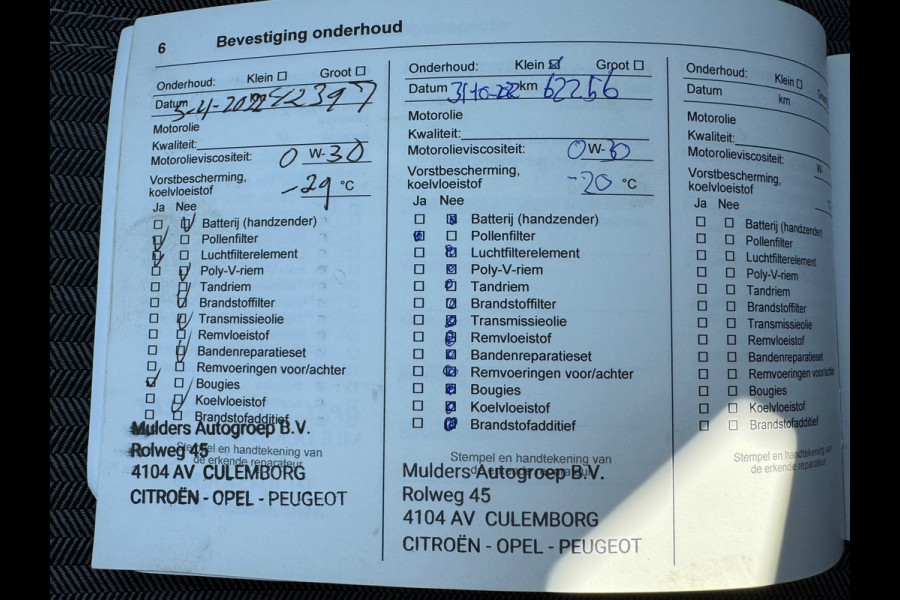 6 Bevestiging onderhoud
Onderhoud: Klein ☐ Groot ☐
Datum
Motorolie
Kwaliteit:
Motorolieviscositeit: 0 W-30
Vorstbescherming,
koelvloeistof -29 °C
Ja Nee
Batterij (handzender)
Pollenfilter
Luchtfilterelement
Poly-V-riem
Tandriem
Brandstoffilter
Transmissieolie
Remvloeistof
Bandenreparatieset
Remvoeringen voor/achter
Bougies
Koelvloeistof
Brandstofadditief
Stempel en handtekening van
de erkende reparateur
Mulders Autogroep B.V.
Rolweg 45
4104 AV CULEMBORG
CITROËN - OPEL - PEUGEOT
Onderhoud: Klein ☒ Groot ☐
Datum 31-10-22 km 62256
Motorolie
Kwaliteit:
Motorolieviscositeit: 0 W-30
Vorstbescherming,
koelvloeistof -20 °C
Ja Nee
Batterij (handzender)
Pollenfilter
Luchtfilterelement
Poly-V-riem
Tandriem
Brandstoffilter
Transmissieolie
Remvloeistof
Bandenreparatieset
Remvoeringen voor/achter
Bougies
Koelvloeistof
Brandstofadditief
Stempel en handtekening van
de erkende reparateur
Mulders Autogroep B.V.
Rolweg 45
4104 AV CULEMBORG
CITROËN - OPEL - PEUGEOT
Onderhoud: Klein ☐
Datum km
Motorolie
Kwaliteit:
Motorolieviscositeit: W-
Vorstbescherming,
koelvloeistof
Ja Nee
Batterij (handzender)
Pollenfilter
Luchtfilterelement
Poly-V-riem
Tandriem
Brandstoffilter
Transmissieolie
Remvloeistof
Bandenreparatieset
Remvoeringen voor/achter
Bougies
Koelvloeistof
Brandstofadditief
Stempel en handtekening van
de erkende reparateur